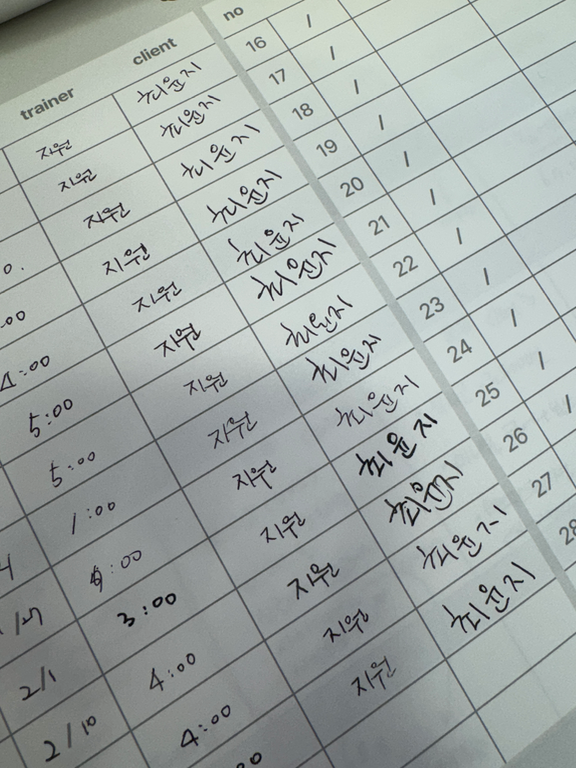 trainer client
지원 최윤지
지원 최윤지
지원 최윤지
:00 지원 최윤지
4:00 지원 최윤지
5:00 지원 최윤지
5:00 지원 최윤지
1:00 지원 최윤지
지원 최윤지
2/1 3:00 지원 최윤지
2/10 4:00 지원 최윤지
4:00 지원 최윤지
지원 최윤지
no
16 /
17 /
18 /
19 /
20 /
21 /
22 /
23 /
24 /
25 /
26 /
27
28